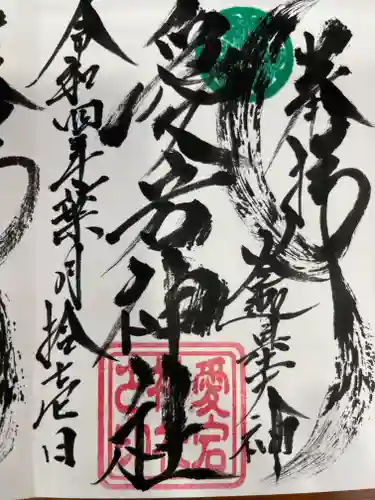 奉拝
神
愛宕神社
愛宕
令和四年葉月拾壱日